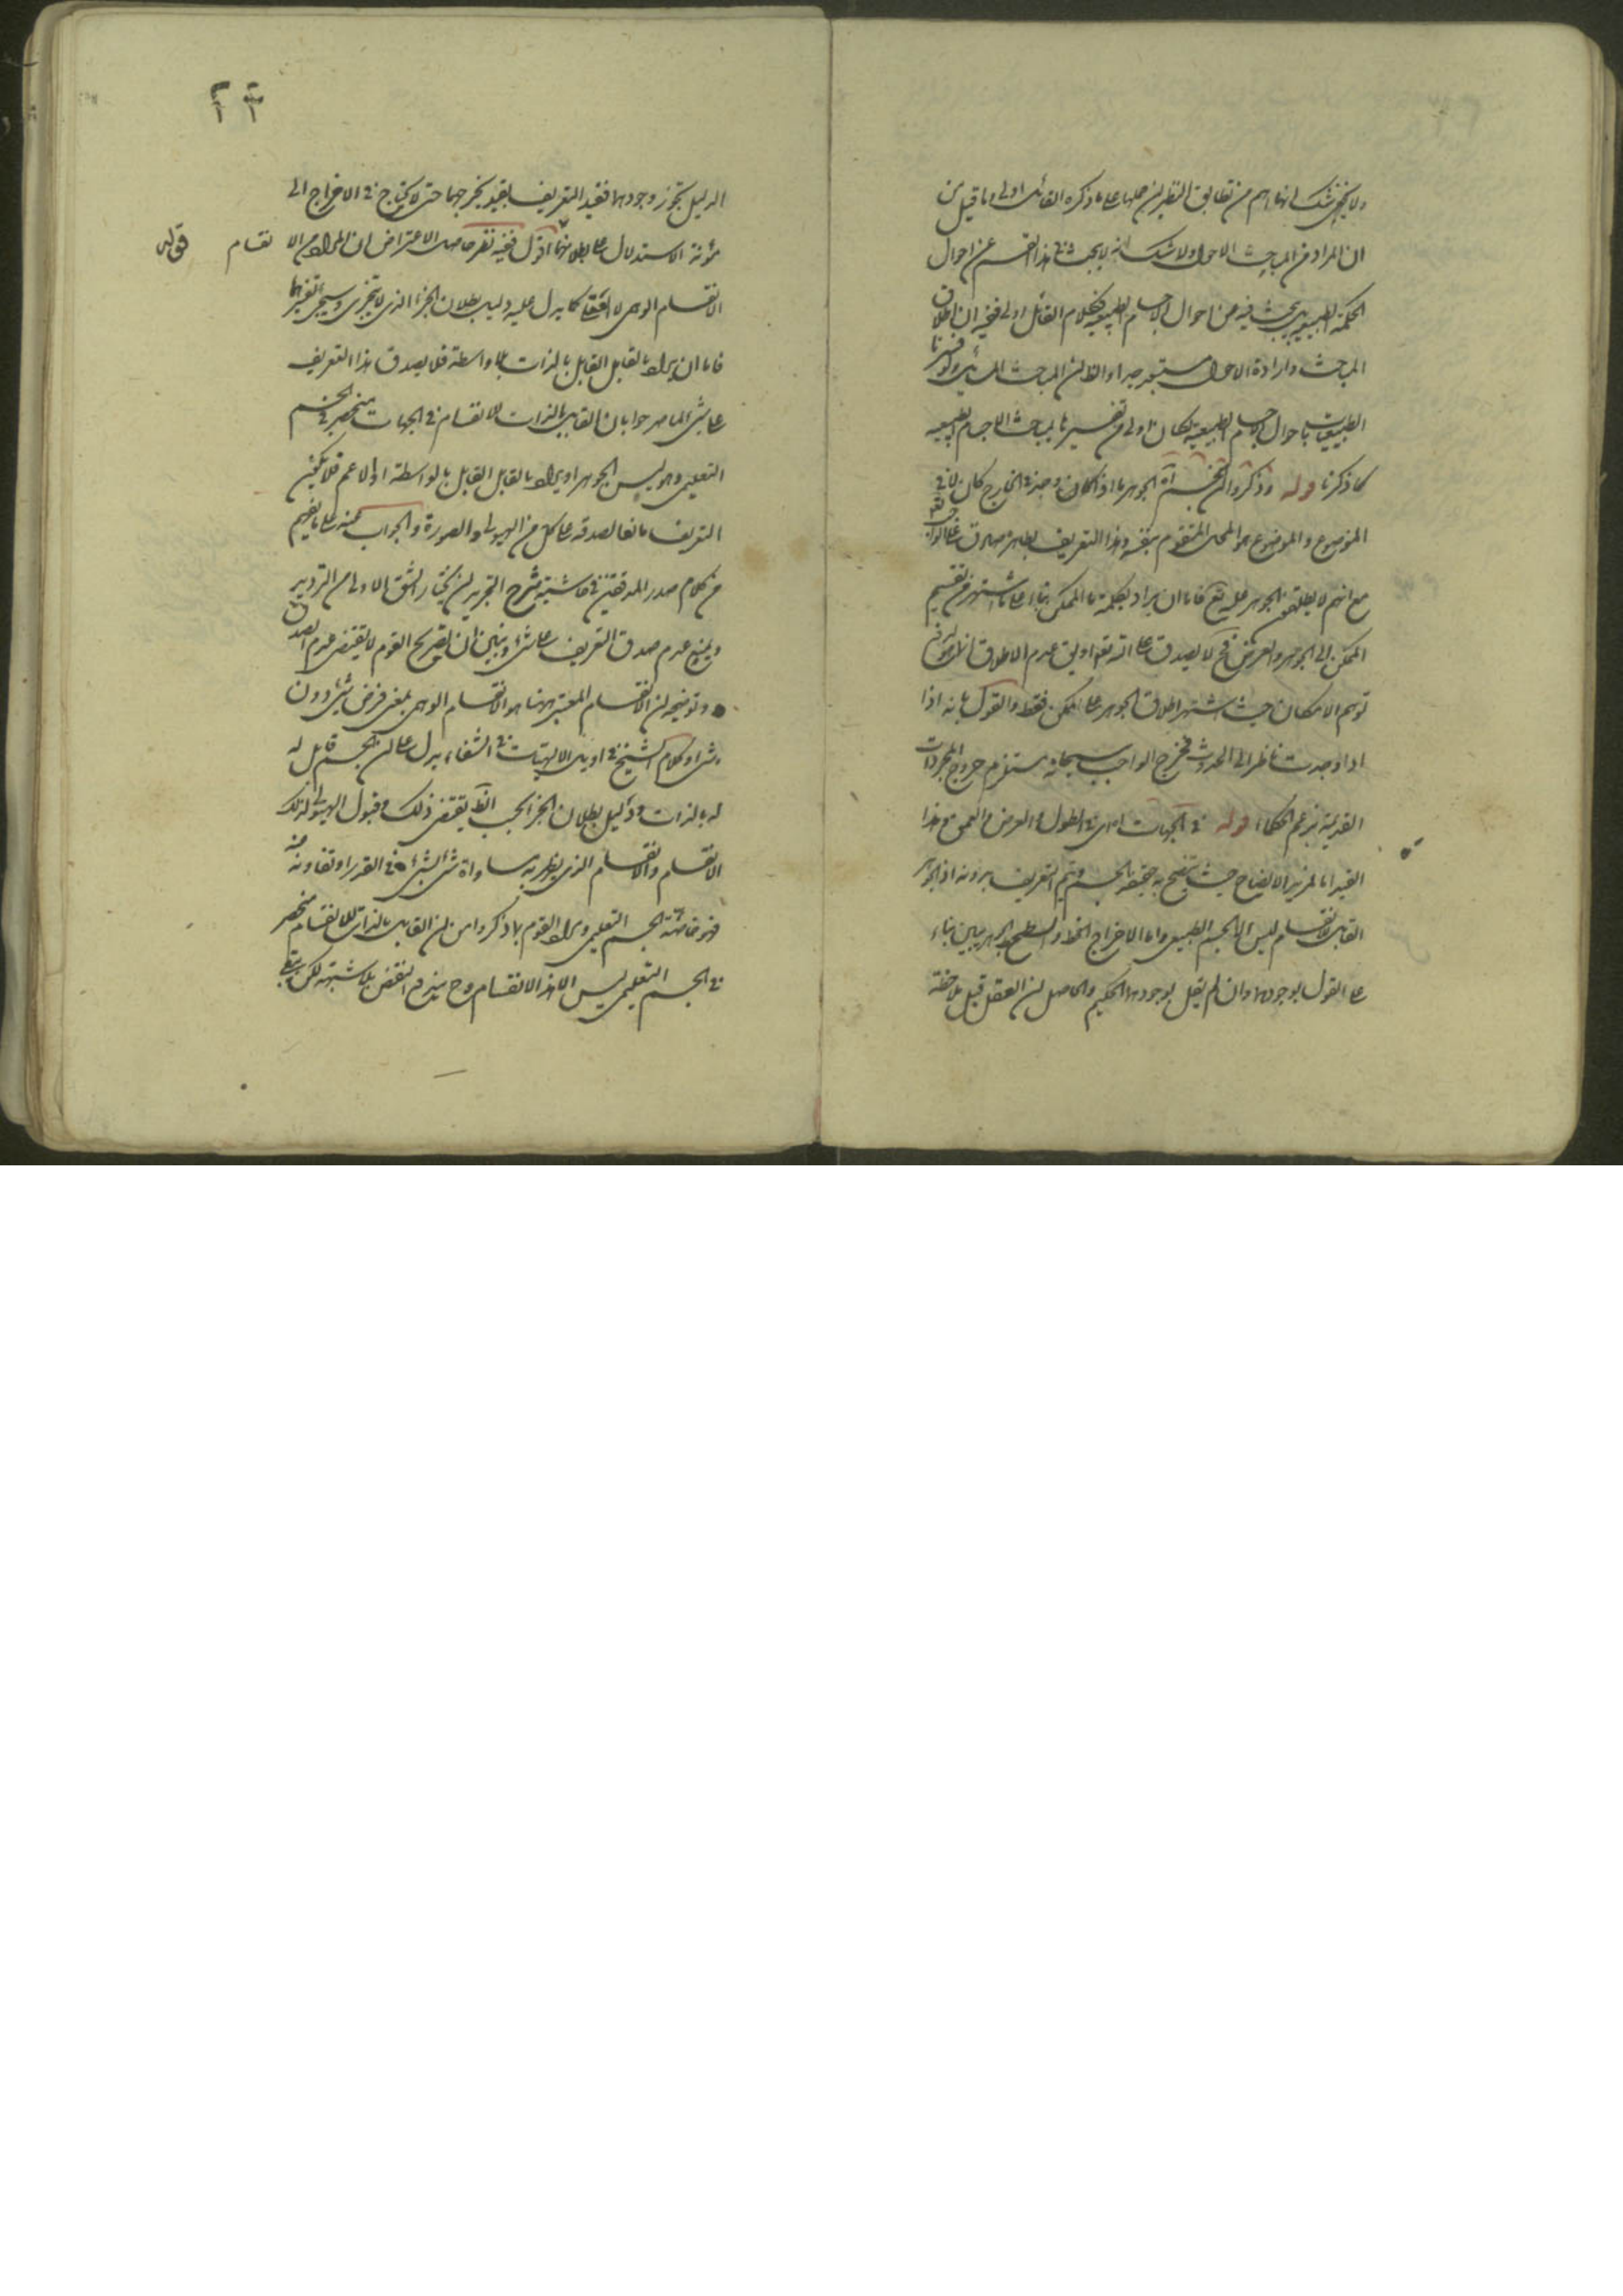 ولا يخفى انهما من تطابق النظيرين حملها على ما ذكره القائل اولى وما قيل من
ان المراد من المباحث الاحوال ولا شك انه لا يبحث في هذا القسم عن احوال
الحكمة الطبيعية بل يبحث فيه من احوال الاجسام الطبيعية فكلام القائل اولى ففيه ان اطلاق
المباحث وارادة الاحوال مستبعد جدا والظ ان المباحث المسائل ولو فسرنا
الطبيعيات باحوال الاجسام الطبيعية لكان اولى من تفسيرنا بمباحث الاجسام الطبيعية
كما ذكرنا قوله وذكروا ان الجسم آه الجوهر ما اذا كان وجد في الخارج كان لا في
الموضوع والموضوع هو المحل المتقوم بنفسه وهذا التعريف بظاهره صادق على الواجب تع
مع انهم لا يطلقون الجوهر عليه تع فاما ان يراد بكلمة ما الممكن بناء على ما اشتهر من تقسيم
الممكن الى الجوهر والعرض فح لا يصدق عليه تع او يق عدم الاطلاق
توهم الامكان حيث اشتهر اطلاق الجوهر على الممكن فقط والقول بانه اذا
اذا وجدت ناظر الى الحدوث فخرج الواجب سبحانه يستلزم خروج المجردات
القديمة بزعم الحكماء قوله في الجهات اي في الطول والعرض والعمق هذا
القيد اما لمزيد الايضاح حيث يتضح به حقيقة الجسم ويتم التعريف بدونه اذ الجوهر
القابل للانقسام ليس الا الجسم الطبيعي واما لاخراج الخط والسطح الجوهريين بناء
على القول بوجودهما وان لم يقل بوجودهما الحكيم والحاصل ان العقل قبل ملاحظة
٢٣
الدليل يجوز وجودهما فقيد التعريف بقيد يخرجهما حتى لا يحتاج في الاخراج الى
مؤنة الاستدلال على بطلانهما اقول ففيه نظر حاصل الاعتراض ان المراد من الا نقسام قوله
الانقسام الوهمي لا الفكي كما يدل عليه دليل بطلان الجزء الذي لا يتجزى وسيجيء تفسيرهما
فاما ان يراد بالقابل القابل بالذات بلا واسطة فلا يصدق هذا التعريف
على شيء لما صرحوا بان القابل بالذات للانقسام في الجهات منحصر في الجسم
التعليمي وهو ليس الجوهر او يراد بالقابل القابل بالواسطة او الاعم فلا يكون
التعريف مانعا لصدقه على كل من الهيولى والصورة والجواب عنه على ما يفهم
من كلام صدر المدققين في حاشية شرح التجريد ان يختار الشق الاول من الترديد
ويمنع عدم صدق التعريف على شيء ويبين ان تصريح القوم لا يقتضي عدم الصدق
وتوضيحه ان الانقسام المعتبر ههنا هو الانقسام الوهمي بمعنى فرض شيء دون
شيء وكلام الشيخ في اوايل الالهيات في الشفاء يدل على ان الجسم قابل له
له بالذات ودليل بطلان الجزء يقتضي ذلك وقبول الهيولى لذلك
الانقسام والانقسام الذي يظهر به مساواة شيء لشيء في القدر او تفاوته منه
فهو خاصة الجسم التعليمي ومراد القوم بما ذكروا من ان القابل بالذات للانقسام منحصر
في الجسم التعليمي ليس الا هذا الانقسام وح يندفع النقض بلا شبهة لكن